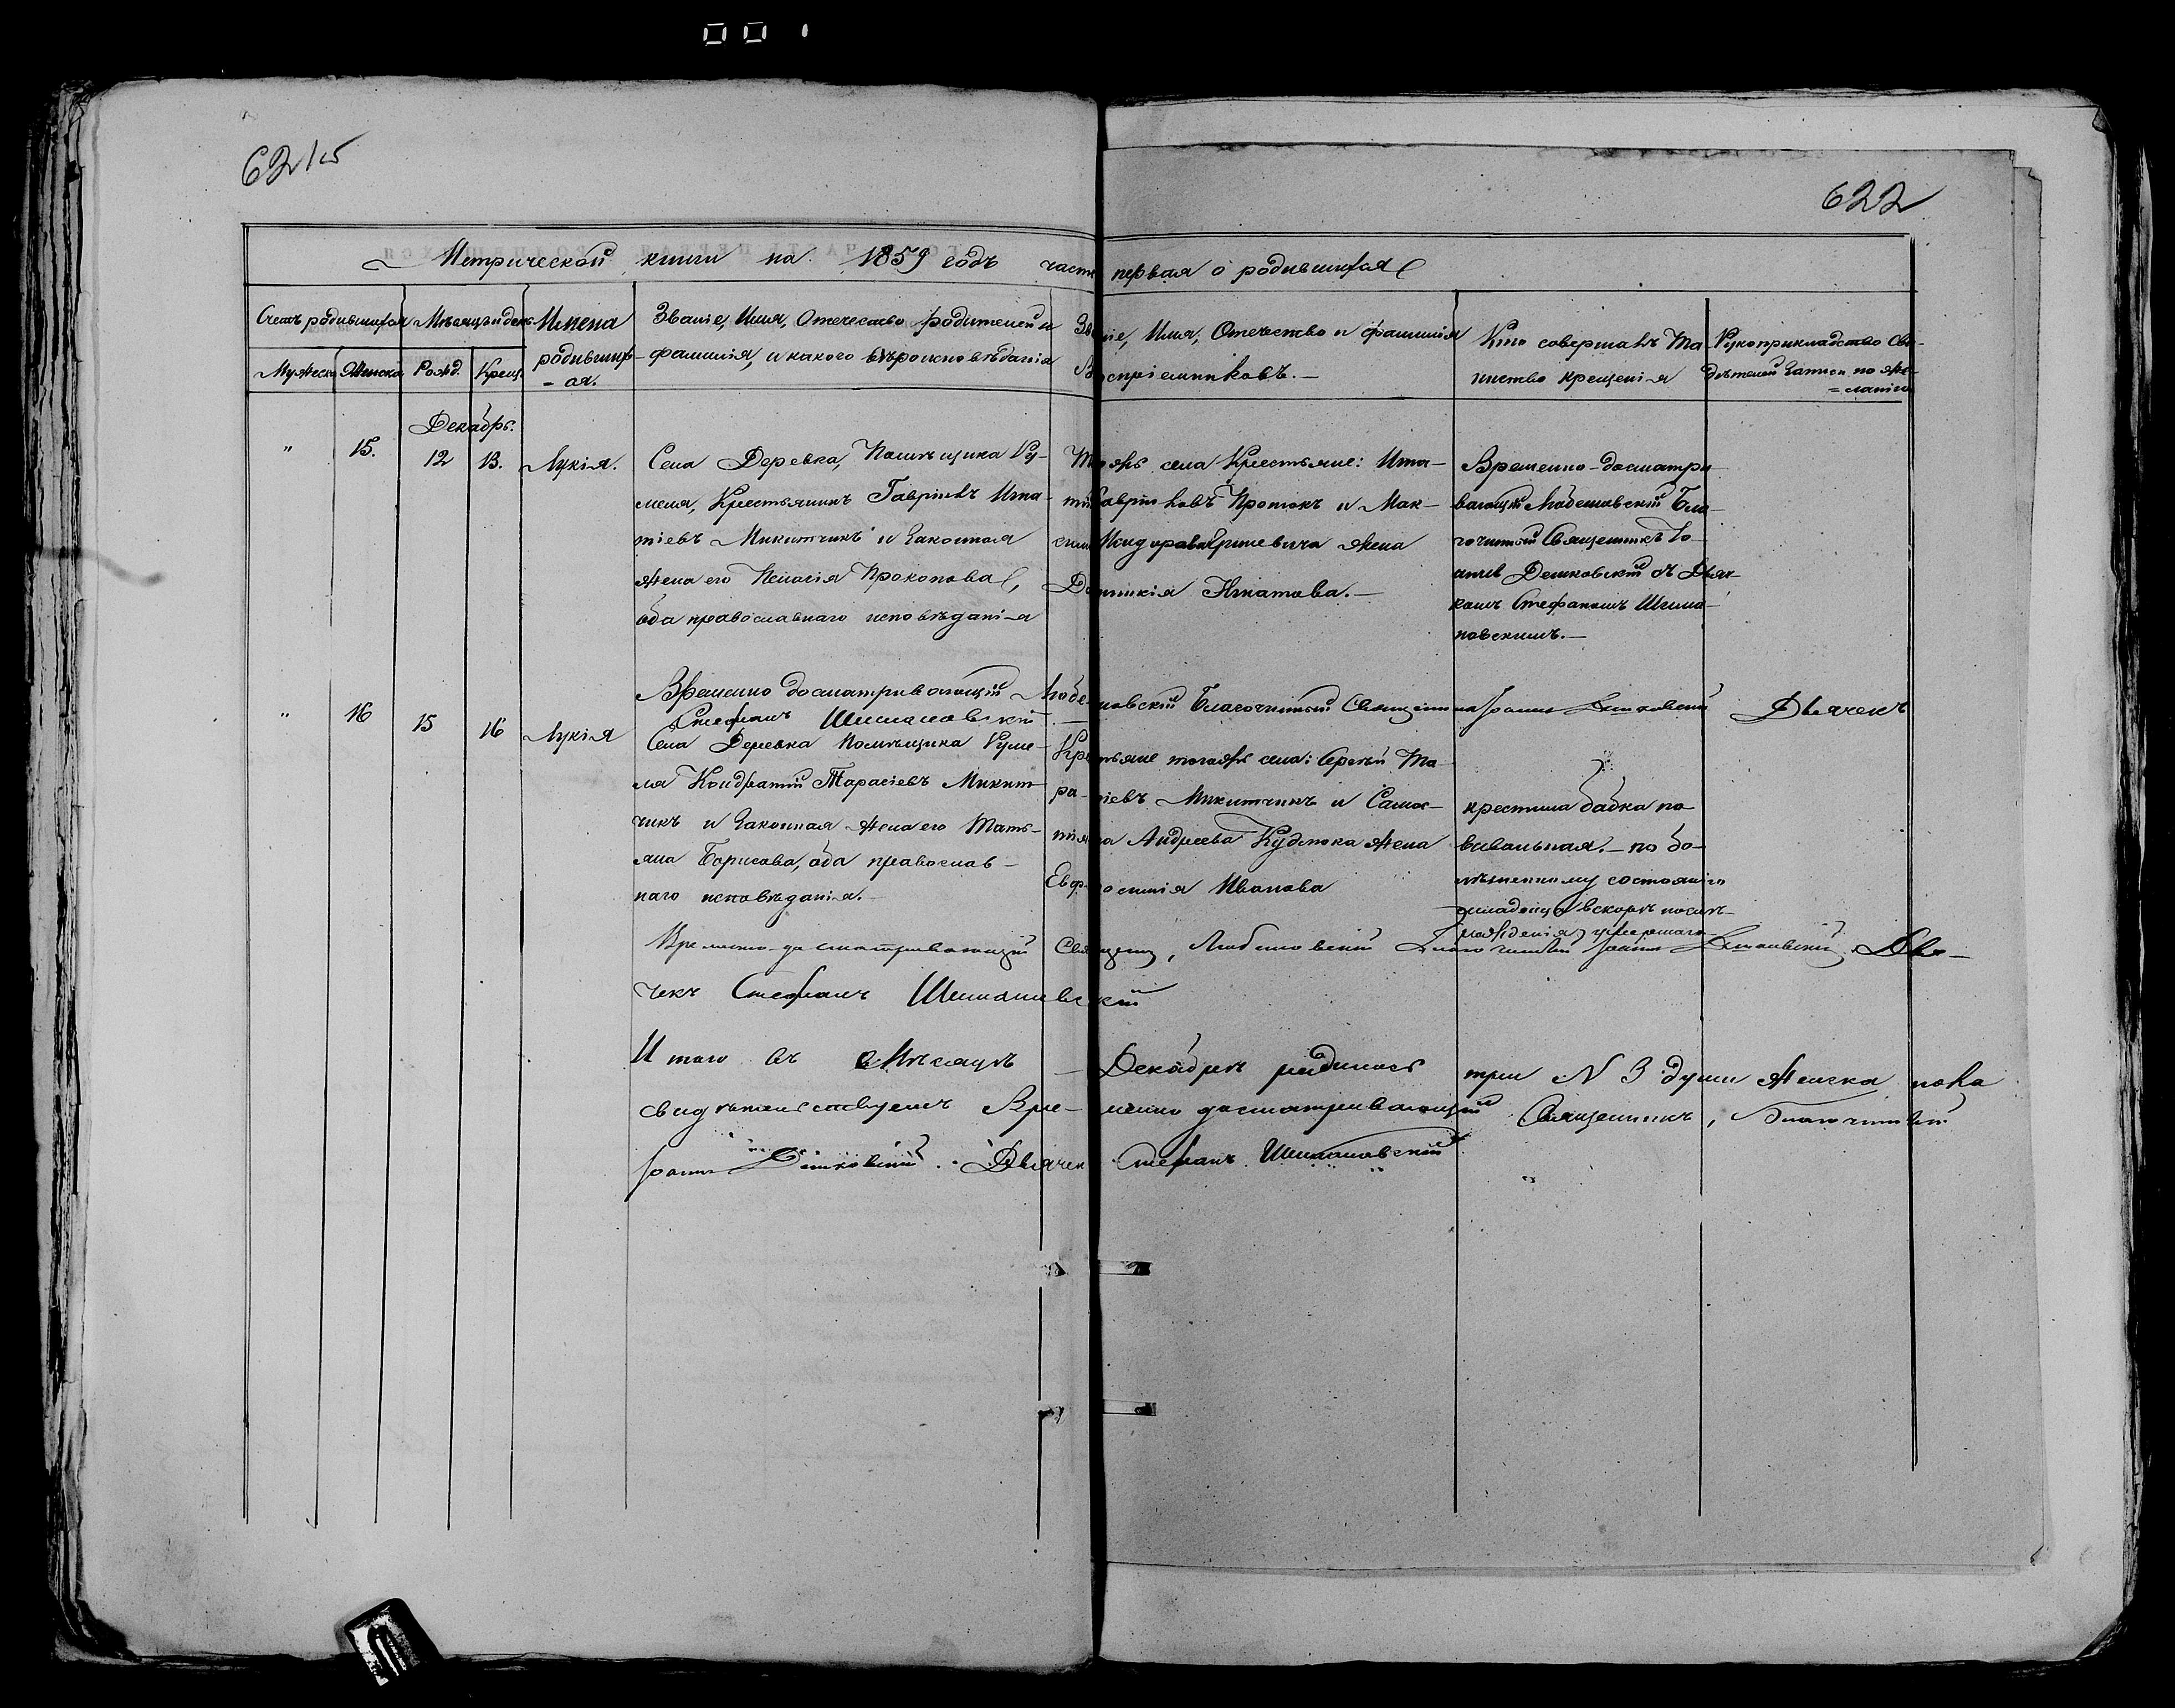 001
621об
622
Метрической книги на 1859 годъ часть первая о родившихся
Счетъ родившихся
Мѣсяцъ и день
Имена родивших-
=ся.
Званіе, Имя, Отечество родителей и
фамилія, и какого вѣроисповѣданія
Званіе, Имя, Отечество и фамилія
Воспріемниковъ.—
Кто совершалъ Та
инство крещенія
Рукоприкладство Сви-
дѣтелей записи по же-
=ланію
Мужеска
Женска
Рожд.
Крещ.
Декабрь.
" 15. 12 13. Лукія.
Села Деревка, Помѣщика Ру-
меля, Крестьянинъ Гавріилъ Игна-
тіевъ Микитчикъ и законная
жена его Пелагія Прокопова,
оба православнаго исповѣданія
Тогожъ села Крестьяне: Игна-
тій Гавріиловъ Протокъ и Мак-
сима Исидорова Гриневича жена
Домникія Игнатова.—
Временно-досматри-
вающій Любешовскій Бла-
гочинный Священникъ Іо-
аннъ Дешковскій съ Дьяч-
комъ Стефаномъ Шима-
новскимъ.—
Временно досматривающій Любешовскій Благочинный Священникъ Іоаннъ Дешковскій Дьячекъ
Стефанъ Шимановскій.—
" 16 15 16 Лукія
Села Деревка Помѣщика Руме-
ля Кондратій Тарасіевъ Микит-
чикъ и законная жена его Тать-
яна Борисова, оба православ-
наго исповѣданія.
Крестьяне тогожъ села: Сергѣй Та-
расіевъ Микитчикъ и
Андреева жена
Евфросинія Иванова
крестила бабка по
вивальная.— по бо-
лѣзненному состоянію
младенца вскорѣ послѣ
рожденія умершаго
Временно-досматривающій Священ, Любешовскій Благочинный Іоаннъ Дешковскій. Дья-
чекъ Стефанъ Шимановскій
Итого въ Мѣсяцѣ — Декабрѣ родилось три N 3 души женска пола
свидѣтельствуемъ Вре- менно досматривающій Священникъ, Благочинный
Іоаннъ Дешковскій. Дьячекъ Стефанъ Шимановскій